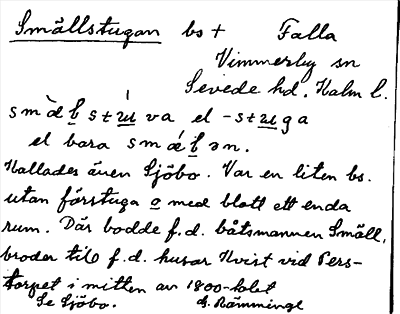 Smällstugan bs + Falla
Vimmerby sn
Sevede hd. Kalm l.
smàlstúva el -stuga
el bara smálən.
Kallades även Sjöbo. Var en liten bs.
utan förstuga o med blott ett enda
rum. Där bodde f.d. båtsmannen Smäll,
broder till f.d. husar Kvist vid Pers-
torpet i mitten av 1800-talet
Se Sjöbo. G. Rämminge